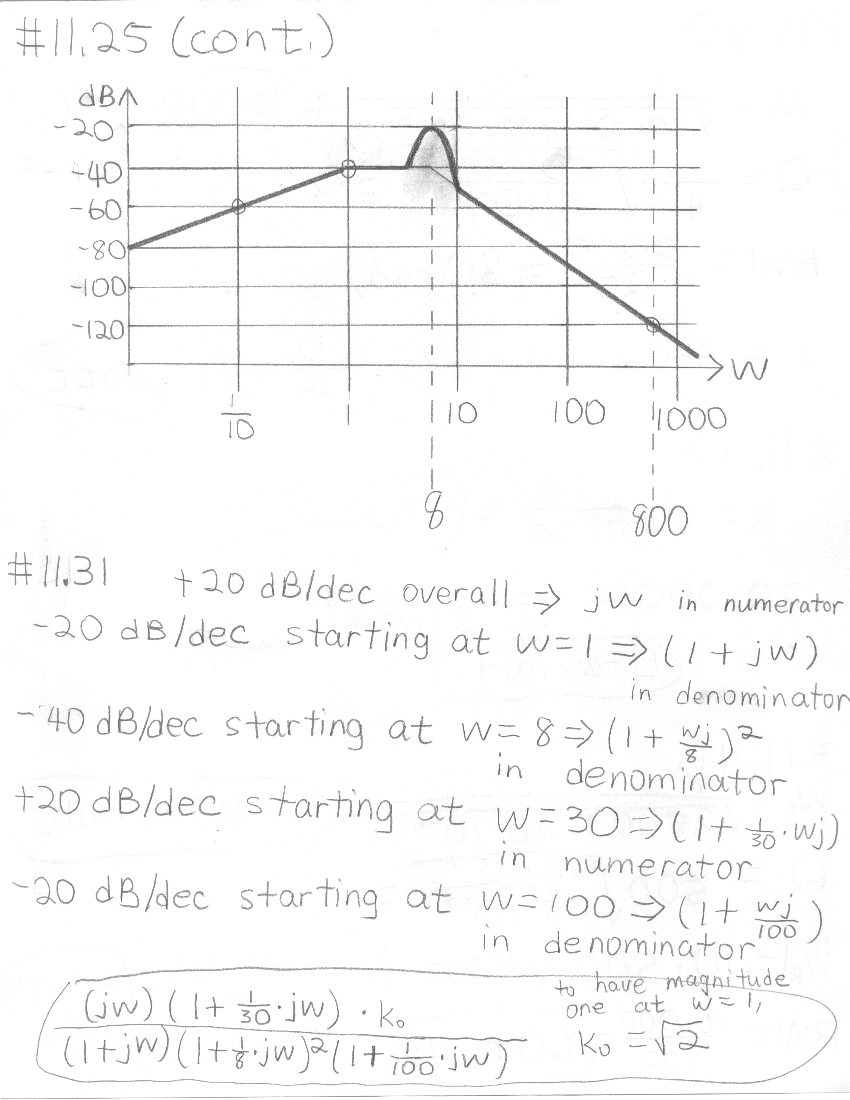 #11.25 (cont.)
dB
-20
-40
-60
-80
-100
-120
W
1/10 1 10 100 1000
8 800
#11.31 +20 dB/dec overall ⇒ jw in numerator
-20 dB/dec starting at w=1 ⇒ (1 + jw)
in denominator
-40 dB/dec starting at w=8 ⇒ (1 + wj/8)²
in denominator
+20 dB/dec starting at w=30 ⇒ (1 + 1/30·wj)
in numerator
-20 dB/dec starting at w=100 ⇒ (1 + wj/100)
in denominator
to have magnitude
one at w=1,
(jw)(1 + 1/30·jw)·k₀
(1+jw)(1+1/8·jw)²(1+1/100·jw)
k₀ = √2